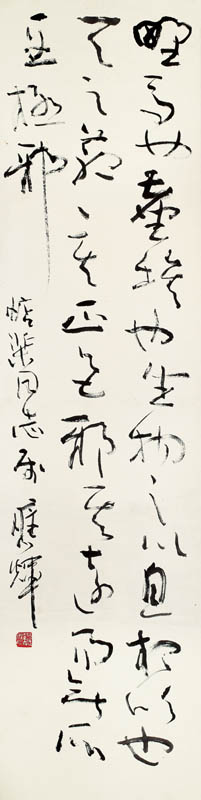 野馬也塵埃也生物之以息相吹也
天之蒼〻其正色邪其遠而無所
至極邪
同志屬 應輝